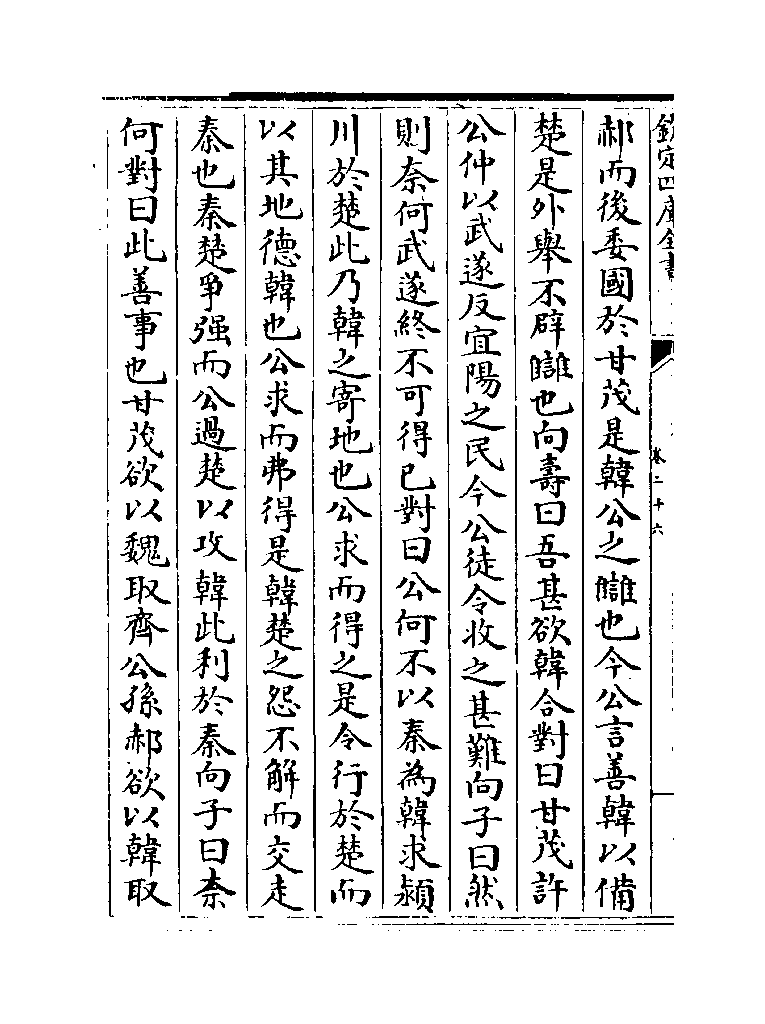 欽定四庫全書
卷二十六
郝而後委國於甘茂是韓公之讎也今公言善韓以備
楚是外舉不辟讎也向壽曰吾甚欲韓合對曰甘茂許
公仲以武遂反宜陽之民今公徒令收之甚難向子曰然
則奈何武遂終不可得已對曰公何不以秦為韓求潁
川於楚此乃韓之寄地也公求而得之是令行於楚而
以其地德韓也公求而弗得是韓楚之怨不解而交走
秦也秦楚爭强而公過楚以攻韓此利於秦向子曰奈
何對曰此善事也甘茂欲以魏取齊公孫郝欲以韓取